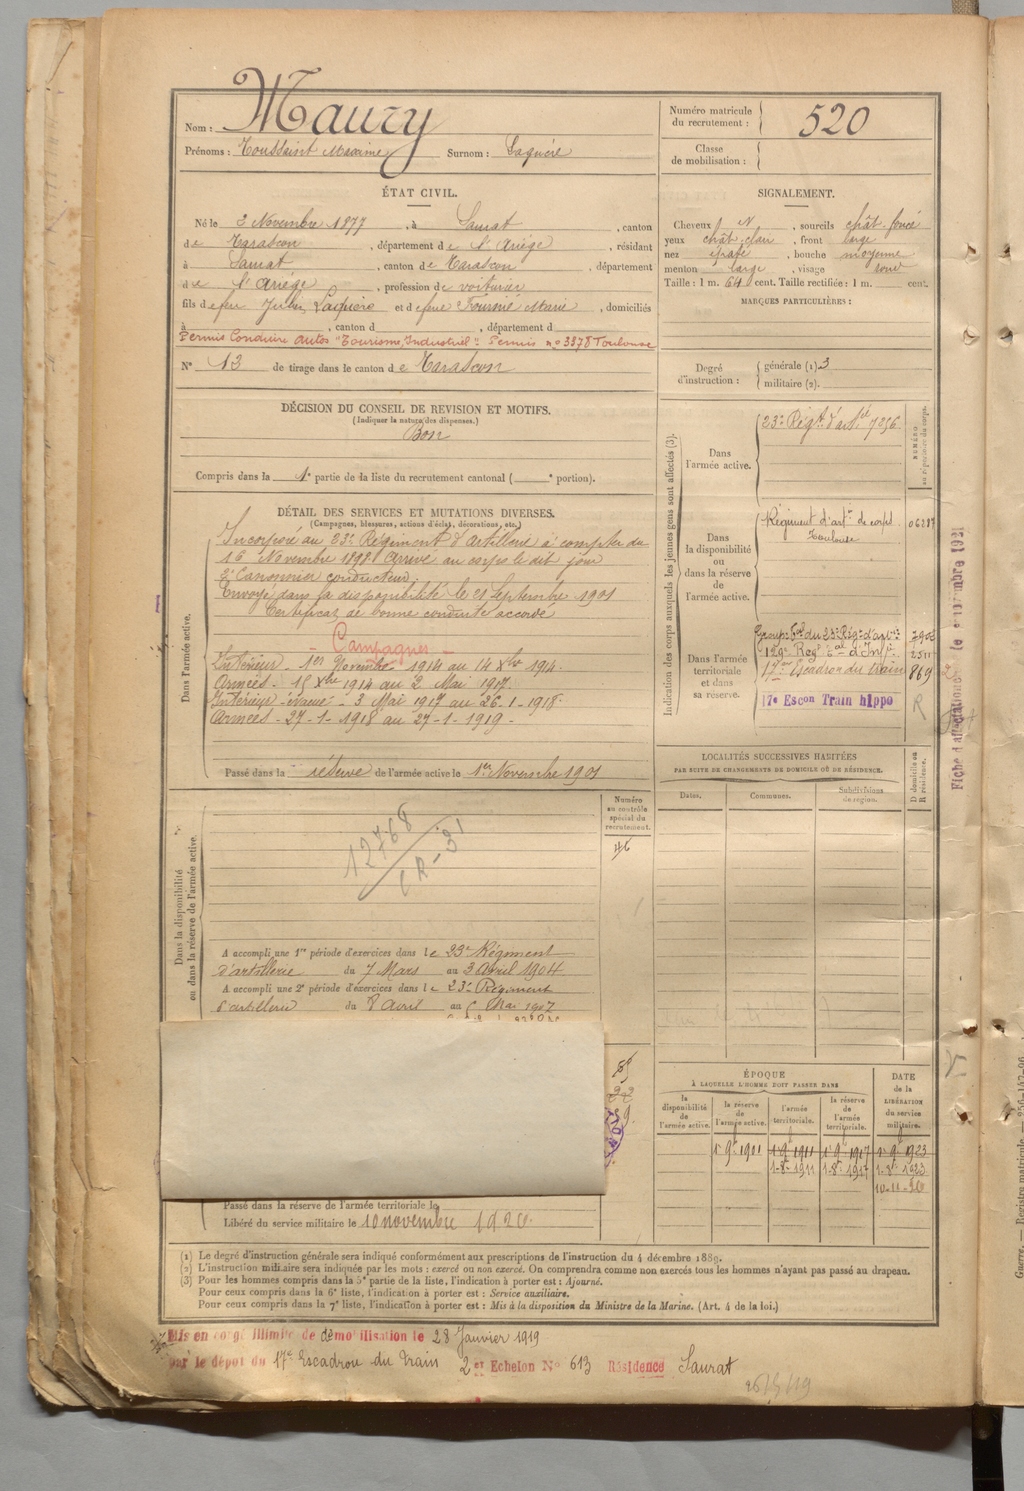 Nom : Maury
Prénoms : Toussaint Maxime Surnom : Laquière
Numéro matricule du recrutement : 520
Classe de mobilisation :
ÉTAT CIVIL.
Né le 2 Novembre 1877, à Saurat, canton
de Tarascon, département de l'Ariège, résidant
à Saurat, canton de Tarascon, département
de l'Ariège, profession de voiturier
fils de feu Julien Laquière et de feue Fournié Marie, domiciliés
à , canton d , département d
Permis Conduire autos "Tourisme, Industriel". Permis no 3378 Toulouse
N° 13 de tirage dans le canton de Tarascon
SIGNALEMENT.
Cheveux N, sourcils chât. foncé
yeux chât. clair, front large
nez épaté, bouche moyenne
menton large, visage rond
Taille : 1 m. 64 cent. Taille rectifiée : 1 m. cent.
MARQUES PARTICULIÈRES :
Degré d'instruction : générale (1) 3
militaire (2).
DÉCISION DU CONSEIL DE REVISION ET MOTIFS.
(Indiquer la nature des dispenses.)
Bon
Compris dans la 1e partie de la liste du recrutement cantonal ( e portion).
DÉTAIL DES SERVICES ET MUTATIONS DIVERSES.
(Campagnes, blessures, actions d'éclat, décorations, etc.)
Dans l'armée active.
Incorporé au 23e Régiment d'artillerie à compter du
16 Novembre 1898. Arrivé au corps le dit jour
2e Canonnier conducteur.
Envoyé dans la disponibilité le 21 Septembre 1901
Certificat de bonne conduite accordé
- Campagnes -
Intérieur - 1er Novembre 1914 au 14 Xbre 1914.
Armées - 15 Xbre 1914 au 2 Mai 1917.
Intérieur évacué - 3 Mai 1917 au 26-1-1918.
Armées - 27-1-1918 au 27-1-1919.
Passé dans la réserve de l'armée active le 1er Novembre 1901
Indication des corps auxquels les jeunes gens sont affectés (3).
NUMÉRO
Dans l'armée active.
23e Régt d'artie 7356
Dans la disponibilité ou dans la réserve de l'armée active.
Régiment d'artie de corps
Toulouse
Dans l'armée territoriale et dans sa réserve.
Groupe tal du 23e Régt d'artie
129e Regt tal d'Infie 2511
17me Escadron du train 869
17e Escon Train hippo R
LOCALITÉS SUCCESSIVES HABITÉES
PAR SUITE DE CHANGEMENTS DE DOMICILE OU DE RÉSIDENCE.
Dates. Communes. Subdivisions de région.
D domicile ou R résidence.
Dans la disponibilité ou dans la réserve de l'armée active.
Numéro au contrôle spécial du recrutement.
46
12768
CR-31
A accompli une 1re période d'exercices dans le 23e Régiment
d'artillerie du 7 Mars au 3 Avril 1904
A accompli une 2e période d'exercices dans le 23e Régiment
d'artillerie du 8 Avril au
ÉPOQUE
À LAQUELLE L'HOMME DOIT PASSER DANS
la disponibilité de l'armée active.
la réserve de l'armée active.
l'armée territoriale.
la réserve de l'armée territoriale.
DATE de la LIBÉRATION du service militaire.
1er 9bre 1901 1er 9bre 1911 1er 9bre 1917 1er 9bre 1923
1-8bre 1911 1-8bre 1917 1-8bre 1923
10-11-20
Passé dans la réserve de l'armée territoriale le
Libéré du service militaire le 10 novembre 1920.
(1) Le degré d'instruction générale sera indiqué conformément aux prescriptions de l'instruction du 4 décembre 1889.
(2) L'instruction militaire sera indiquée par les mots : exercé ou non exercé. On comprendra comme non exercés tous les hommes n'ayant pas passé au drapeau.
(3) Pour les hommes compris dans la 5e partie de la liste, l'indication à porter est : Ajourné.
Pour ceux compris dans la 6e liste, l'indication à porter est : Service auxiliaire.
Pour ceux compris dans la 7e liste, l'indication à porter est : Mis à la disposition du Ministre de la Marine. (Art. 4 de la loi.)
Mis en congé illimité de démobilisation le 28 Janvier 1919
par le dépot du 17e Escadron du Train 2 et Echelon No 613 Résidence Saurat